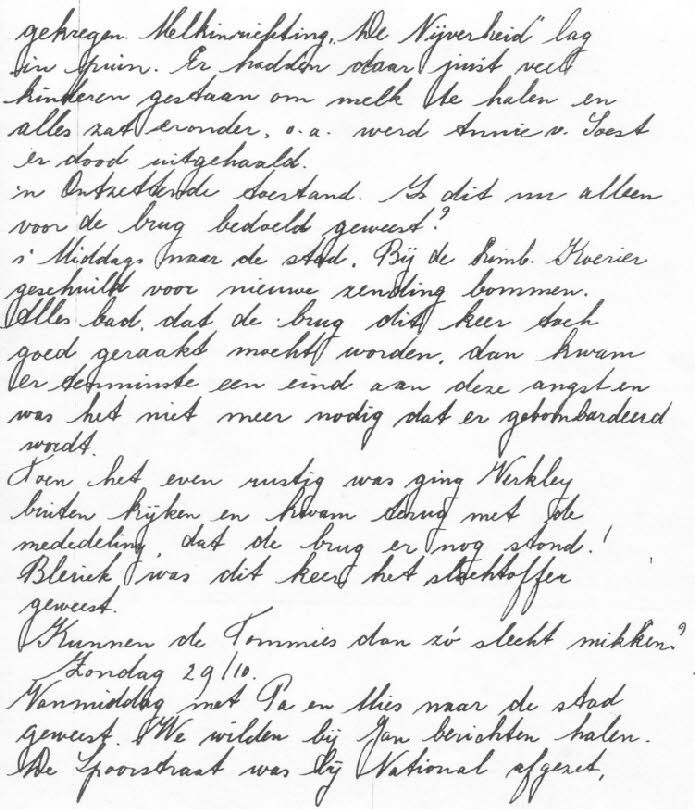 gekregen. Melkinrichting "De Nijverheid" lag
in puin. Er hadden daar juist veel
kinderen gestaan om melk te halen en
alles zat eronder, o.a. werd Annie v. Soest
er dood uitgehaald.
'n Ontzettende toestand. Is dit nu alleen
voor de brug bedoeld geweest?
's Middags naar de stad. Bij de Limb. Koerier
geschuild voor nieuwe zending bommen.
Alles bad, dat de brug dit keer toch
goed geraakt mocht worden, dan kwam
er tenminste een eind aan deze angst en
was het niet meer nodig dat er gebombardeerd
wordt.
Toen het even rustig was ging Verkley
buiten kijken en kwam terug met de
mededeling, dat de brug er nog stond.!
Blerick was dit keer het slachtoffer
geweest.
Kunnen de Tommies dan zó slecht mikken?
Zondag 29/10.
Vanmiddag met Pa en Mies naar de stad
geweest. We wilden bij Jan berichten halen.
De Spoorstraat was bij National afgezet,